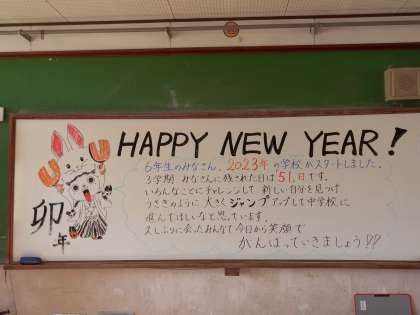 HAPPY NEW YEAR!
6年生のみなさん、2023年の学校がスタートしました。
3学期 みなさんに残された日は51日です。
いろんなことにチャレンジして 新しい自分を見つけ
うさぎのように 大きくジャンプアップして中学校に
進んでほしいなと思っています。
久しぶりに会ったみんなで 今日から笑顔で
がんばっていきましょう!!
卯
年